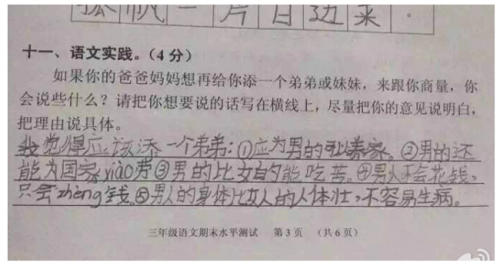 孤帆一片日边来.
十一、语文实践。(4分)
如果你的爸爸妈妈想再给你添一个弟弟或妹妹，来跟你商量，你
会说些什么？请把你想要说的话写在横线上，尽量把你的意见说明白，
把理由说具体。
我觉得应该添一个弟弟：①应为男的 养家。②男的还
能为国家xiào劳③男的比女的能吃苦。④男人不会花钱，
只会zhèng钱。⑤男人的身体比女人的人体壮，不容易生病。
三年级语文期末水平测试 第3页 (共6页)